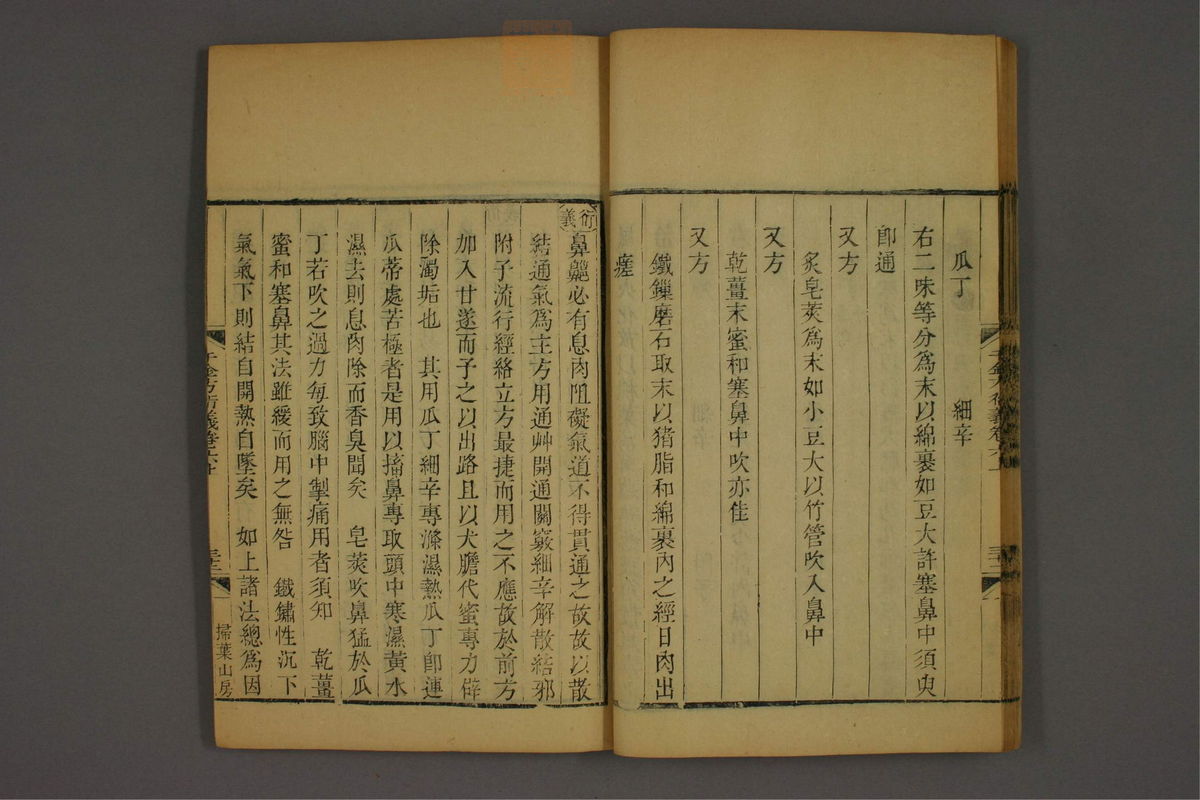 瓜丁 細辛
右二味等分爲末以綿裹如豆大許塞鼻中須臾
卽通
又方
炙皂莢爲末如小豆大以竹管吹入鼻中
又方
乾薑末蜜和塞鼻中吹亦佳
又方
鐵鏁磨石取末以猪脂和綿裹內之經日肉出
瘥
衍義鼻齆必有息肉阻礙氣道不得貫通之故故以散
結通氣爲主方用通艸開通關竅細辛解散結邪
附子流行經絡立方最捷而用之不應故於前方
加入甘遂而子之以出路且以犬膽代蜜專力僻
除濁垢也 其用瓜丁細辛專滌濕熱瓜丁卽連
瓜蒂處苦極者是用以搐鼻專取頭中寒濕黃水
濕去則息肉除而香臭聞矣 皂莢吹鼻猛於瓜
丁若吹之過力每致腦中掣痛用者須知 乾薑
蜜和塞鼻其法雖緩而用之無咎 鐵鏽性沉下
氣氣下則結自開熱自墜矣 如上諸法總爲因
千金方衍義卷六上
三三
掃葉山房